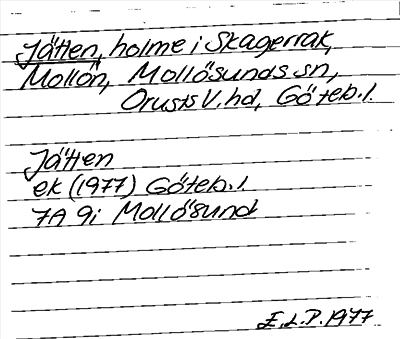 Jätten, holme i Skagerrak,
Mollön, Mollösunds sn,
Orusts V. hd, Göteb. l.
Jätten
ek (1977) Göteb. l.
7A 9i Mollösund
E.L.P. 1977